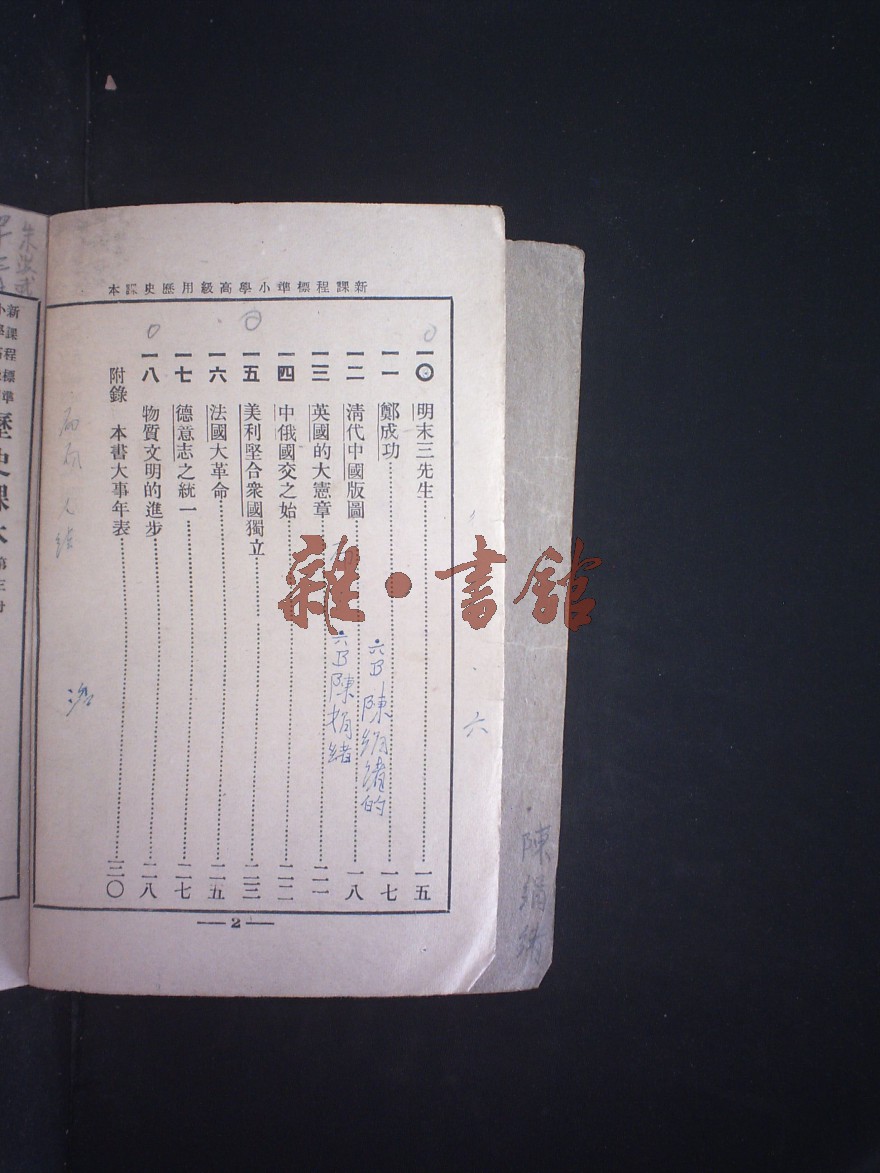 新課程標準小學高級用歷史課本
一〇 明末三先生 一五
一一 鄭成功 一七
一二 清代中國版圖 一八
一三 英國的大憲章 二一
一四 中俄國交之始 二二
一五 美利堅合衆國獨立 二三
一六 法國大革命 二五
一七 德意志之統一 二七
一八 物質文明的進步 二八
附錄 本書大事年表 三〇
2
雜·書館
六B 陳
六B 陳娟緒
六
陳娟緒
歷史課本 第三冊